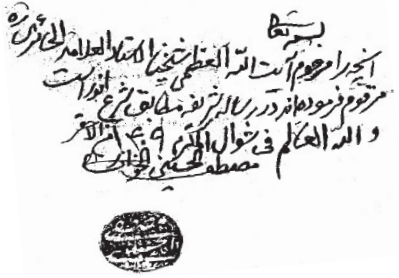 بسمه تعالی
آنچه را مرحوم آیت الله العظمی شیخنا الاستاد العلامه الحائری
مرقوم فرموده‌اند در رساله شریفه مطابق شرع انور است
والله العالم فی شوال المکرم ۴۹ الاحقر
مصطفی الحسینی